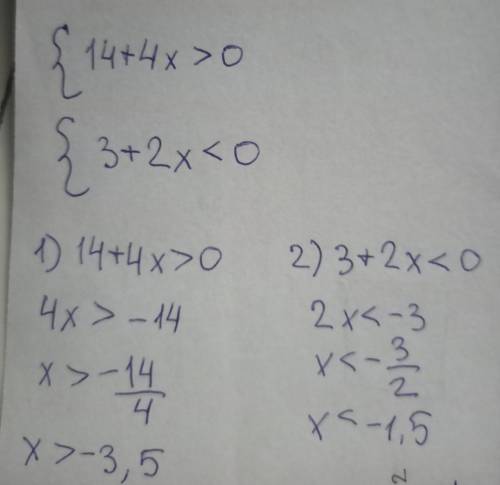 { 14+4x>0
{ 3+2x<0
1) 14+4x>0
4x>-14
x>-14/4
x>-3,5
2) 3+2x<0
2x<-3
x<-3/2
x<-1,5